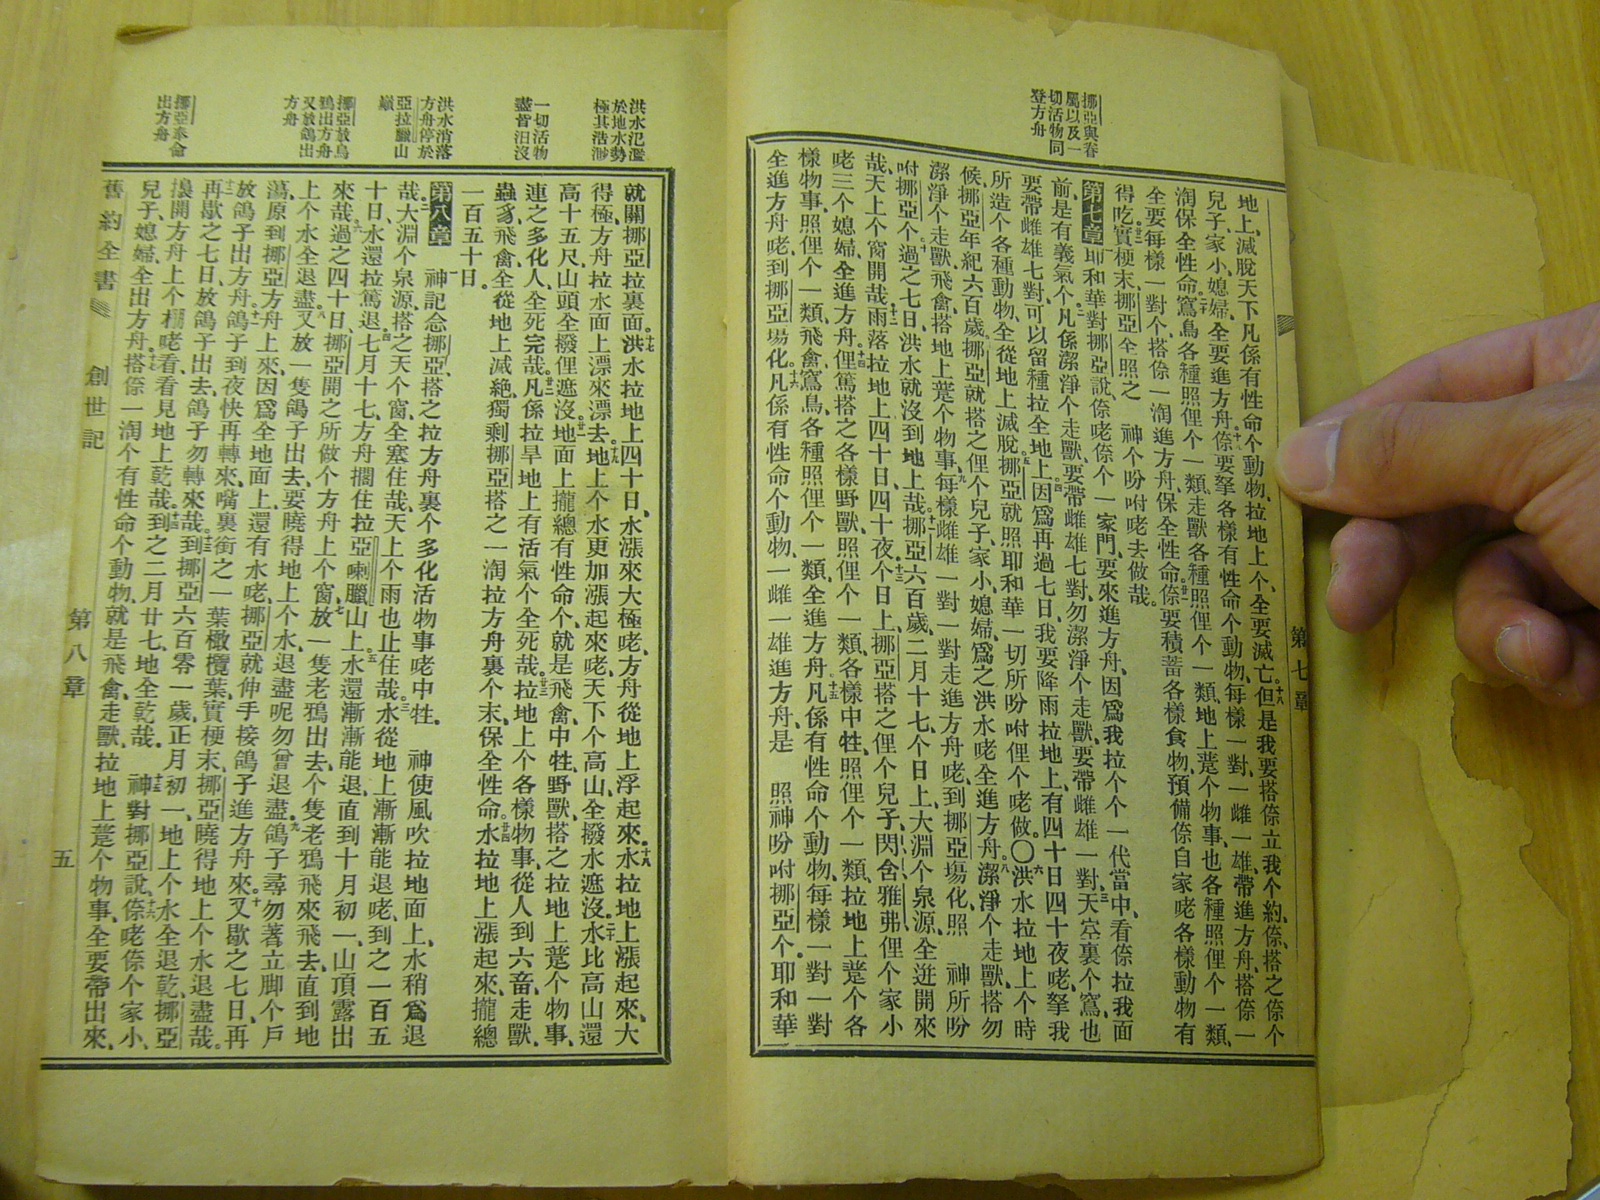 挪亞與眷
屬以及一
切活物同
登方舟
地上、滅脫天下凡係有性命个動物、拉地上个、全要滅亡。十八但是我要搭倷立我个約、倷、搭之倷个
兒子、家小、媳婦、全要進方舟。十九倷要拏各樣有性命个動物、每樣一對、一雌一雄、帶進方舟、搭倷一
淘保全性命。二十窵鳥各種照俚个一類、走獸各種照俚个一類、地上躉个物事、也各種照俚个一類、
全要每樣一對个搭倷一淘進方舟、保全性命。廿一倷要積蓄各樣食物、預備倷自家咾各樣動物有
得吃。廿二實梗末、挪亞全照之　神个吩咐咾去做哉。
第七章　耶和華對挪亞說、倷咾倷个一家門、要來進方舟、因爲我拉个个一代當中、看倷拉我面
前、是有義氣个。二凡係潔淨个走獸、要帶雌雄七對、勿潔淨个走獸、要帶雌雄一對、三天空裏个窵、也
要帶雌雄七對、可以留種拉全地上。四因爲再過七日、我要降雨拉地上、有四十日四十夜咾、拏我
所造个各種動物、全從地上滅脫。五挪亞就照耶和華一切所吩咐俚个咾做。〇六洪水拉地上个時
候、挪亞年紀六百歲。七挪亞就搭之俚个兒子、家小、媳婦、爲之洪水咾全進方舟。八潔淨个走獸、搭勿
潔淨个走獸、飛禽、搭地上躉个物事、九每樣雌雄一對一對走進方舟咾、到挪亞場化、照　神所吩
咐挪亞个。十過之七日、洪水就沒到地上哉。十一挪亞六百歲、二月十七、个日上、大淵个泉源、全迸開來
哉、天上个窗開哉。十二雨落拉地上四十日四十夜。十三个日上、挪亞搭之俚个兒子、閃、含、雅弗、俚个家小
咾三个媳婦、全進方舟。十四俚篤搭之各樣野獸、照俚个一類、各樣中牲、照俚个一類、拉地上躉个各
樣物事、照俚个一類、飛禽窵鳥各種照俚个一類、全進方舟。十五凡係有性命个動物、每樣一對一對
全進方舟咾、到挪亞場化。十六凡係有性命个動物、一雌一雄進方舟、是　照神吩咐挪亞个。耶和華
第七章
洪水氾濫
於地水勢
極其浩渺
一切活物
盡皆汨沒
洪水消落
方舟停於
亞拉臘山
巔
挪亞放烏
鴉出方舟
又放鴿出
方舟
挪亞奉命
出方舟
就關挪亞拉裏面。十七洪水拉地上四十日、水漲來大極咾、方舟從地上浮起來。十八水拉地上漲起來、大
得極、方舟拉水面上漂來漂去。十九地上个水更加漲起來咾、天下个高山、全撥水遮沒。二十水比高山還
高十五尺、山頭全撥俚遮沒。廿一地面上攏總有性命个、就是飛禽、中牲、野獸、搭之拉地上躉个物事、
連之多化人、全死完哉。廿二凡係拉旱地上有活氣个全死哉。廿三拉地上个各樣物事、從人到六畜、走獸、
蟲豸、飛禽、全從地上滅絕、獨剩挪亞搭之一淘拉方舟裏个末、保全性命。廿四水拉地上漲起來、攏總
一百五十日。
第八章　一神記念挪亞、搭之拉方舟裏个多化活物事咾中牲。　神使風吹拉地面上、水稍爲退
哉。二大淵个泉源、搭之天个窗、全塞住哉、天上个雨也止住哉。三水從地上漸漸能退咾、到之一百五
十日、水還拉篤退。四七月十七、方舟擱住拉亞喇臘山上。五水還漸漸能退、直到十月初一、山頂露出
來哉。六過之四十日、挪亞開之所做个方舟上个窗、七放一隻老鴉出去、个隻老鴉飛來飛去、直到地
上个水全退盡。八又放一隻鴿子出去、要曉得地上个水、退盡呢勿曾退盡。九鴿子尋勿著立脚个戶
蕩、原到挪亞方舟上來、因爲全地面上、還有水咾、挪亞就伸手接鴿子進方舟來。十又歇之七日、再
放鴿子出方舟。十一鴿子到夜快再轉來、嘴裏銜之一葉橄欖葉、實梗末、挪亞曉得地上个水退盡哉。
十二再歇之七日、放鴿子出去、鴿子勿轉來哉。十三到挪亞六百零一歲、正月初一、地上个水全退乾、挪亞
攘開方舟上个棚咾看看、見地上乾哉。十四到之二月廿七、地全乾哉。　十五神對挪亞說、十六倷咾倷个家小、
兒子、媳婦、全出方舟。十七搭倷一淘个有性命个動物、就是飛禽、走獸、拉地上躉个物事、全要帶出來、
舊約全書　創世記　第八章　五